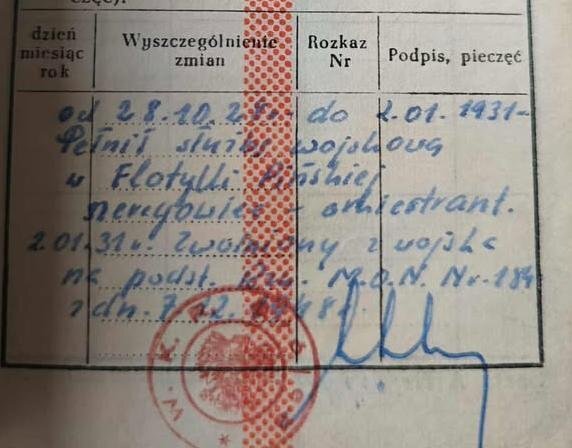 dzień
miesiąc
rok
Wyszczególnienie
zmian
Rozkaz
Nr
Podpis, pieczęć
od 28.10. do 2.01.1931
Pełnił służbę wojskową
w Flotylli Pińskiej
2.01.31r. Zwolniony z wojska
na podst. M.O.N. Nr. 184
z dn. 7.12. 48r.